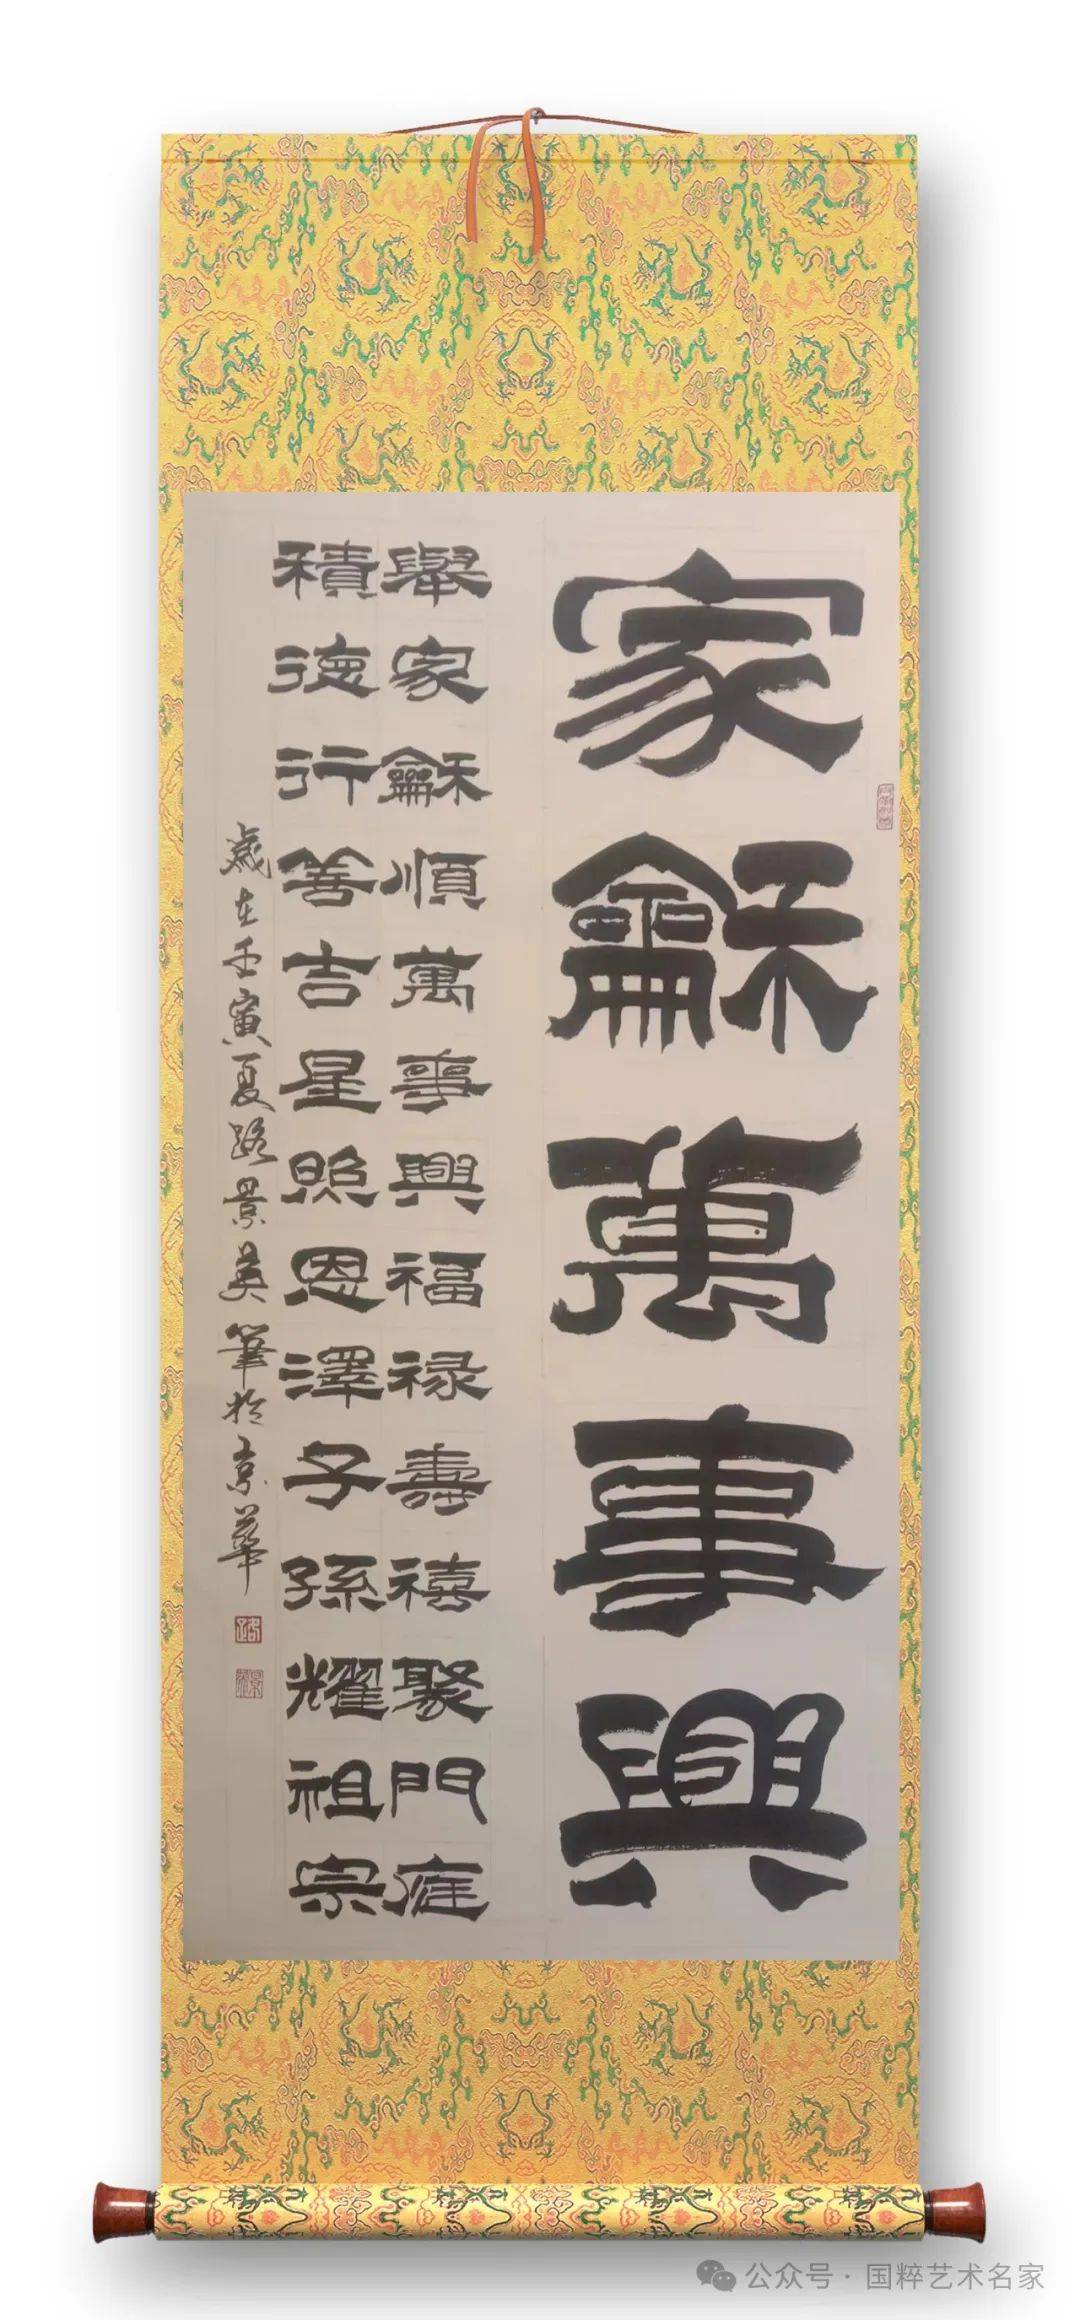 家龢萬事興
舉家龢順萬事興福禄壽禧聚門庭
積德行善吉星照恩澤子孫耀祖宗
歲在壬寅夏路景英筆於京華
公众号·国粹艺术名家